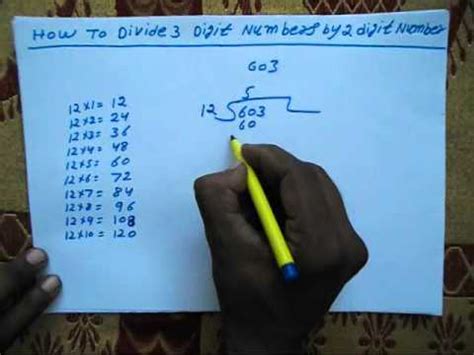 How To Divide 3 Digit Numbers by 2 digit Number
603
5
12 603
60
12×1= 12
12×2= 24
12×3= 36
12×4= 48
12×5= 60
12×6= 72
12×7= 84
12×8= 96
12×9= 108
12×10= 120